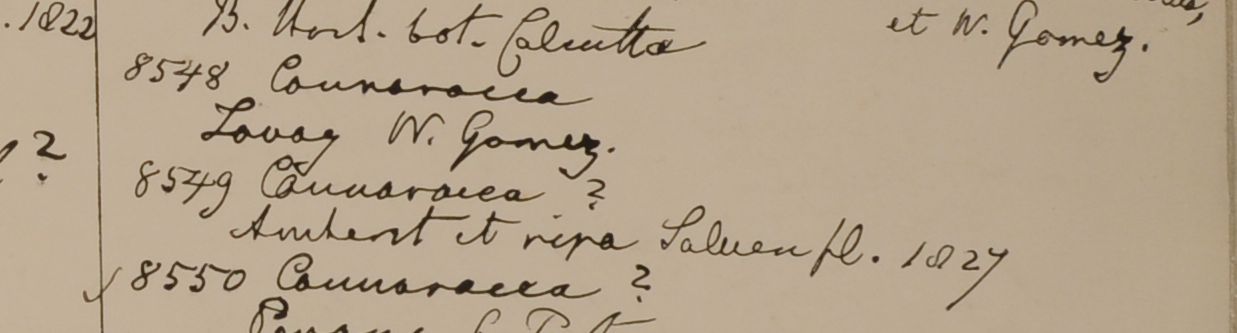 . 1822
B. Hort. bot. Calcutta
et W. Gomez.
8548 Connaracea
Tavoy W. Gomez.
?
8549 Connaracea ?
Amherst et ripa Saluen fl. 1827
8550 Connaracea ?